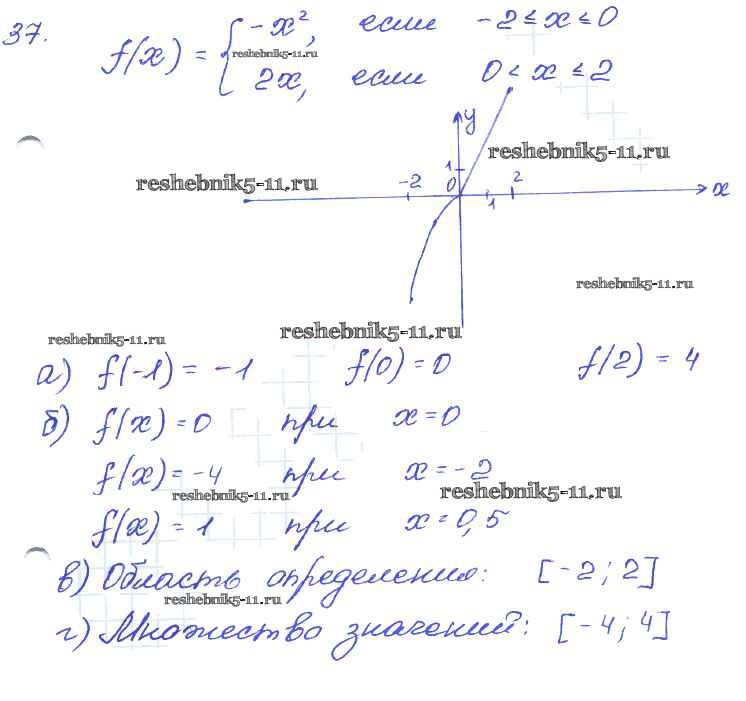 37.
f(x) = { -x², если -2 ≤ x ≤ 0
reshebnik5-11.ru
2x, если 0 < x ≤ 2
y
1
reshebnik5-11.ru
reshebnik5-11.ru
-2 0 1 2 x
reshebnik5-11.ru
reshebnik5-11.ru
reshebnik5-11.ru
а) f(-1) = -1 f(0) = 0 f(2) = 4
б) f(x) = 0 при x = 0
f(x) = -4 при x = -2
reshebnik5-11.ru
reshebnik5-11.ru
f(x) = 1 при x = 0,5
в) Область определения: [-2; 2]
reshebnik5-11.ru
г) Множество значений: [-4; 4]